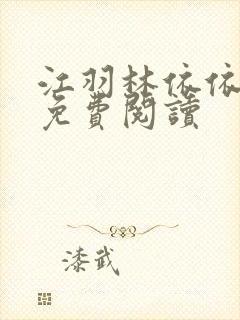 江羽林依依
免費閱讀
漆武